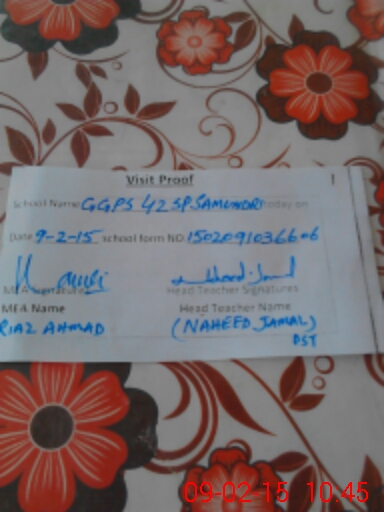 Visit Proof
School Name GGPS 42 SP. SAMUNDRI today on
Date 9-2-15 school form NO. 1502091036606
MEA Signatures Head Teacher Signatures
MEA Name Head Teacher Name
RIAZ AHMAD (NAHEED JAMAL)
PST
09-02-15 10:45